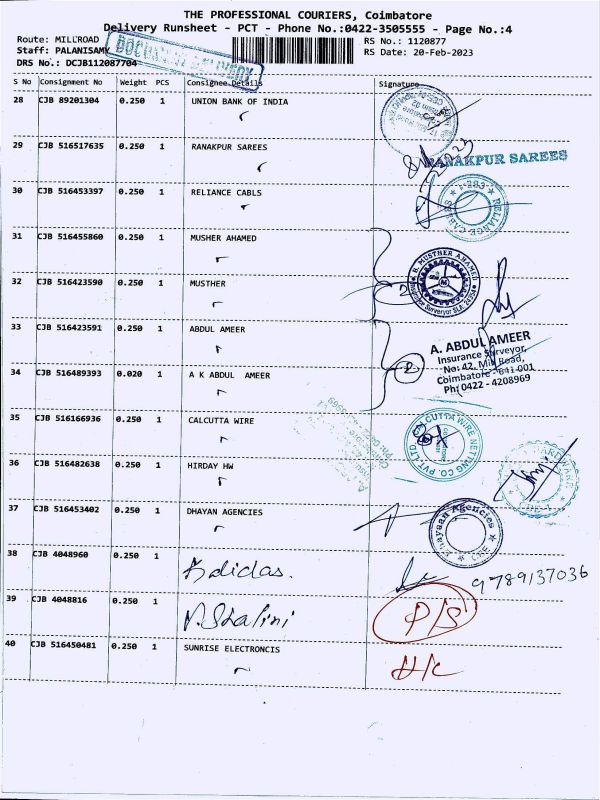 THE PROFESSIONAL COURIERS, Coimbatore
Delivery Runsheet - PCT - Phone No.:0422-3505555 - Page No.:4
Route: MILLROAD RS No.: 1120877
Staff: PALANISAMY RS Date: 20-Feb-2023
DRS No.: DCJB112087704
DOCUMENT DELIVERY
S No Consignment No Weight PCS Consignee Details Signature
28 CJB 89201304 0.250 1 UNION BANK OF INDIA
29 CJB 516517635 0.250 1 RANAKPUR SAREES
RANAKPUR SAREES
30 CJB 516453397 0.250 1 RELIANCE CABLS
31 CJB 516455860 0.250 1 MUSHER AHAMED
B. MUSTHER AHAMED
32 CJB 516423590 0.250 1 MUSTHER
2
33 CJB 516423591 0.250 1 ABDUL AMEER
A. ABDUL AMEER
Insurance Surveyor,
No: 42, Mill Road,
Coimbatore - 641 001
Ph: 0422 - 4208969
34 CJB 516489393 0.020 1 A K ABDUL AMEER
2
35 CJB 516166936 0.250 1 CALCUTTA WIRE
CALCUTTA WIRE NETTING CO. PVT. LTD
36 CJB 516482638 0.250 1 HIRDAY HW
37 CJB 516453402 0.250 1 DHAYAN AGENCIES
Dhayaan Agencies
38 CJB 4048960 0.250 1 Adidas.
9789137036
39 CJB 4048816 0.250 1 N. Shalini
P/S
40 CJB 516450481 0.250 1 SUNRISE ELECTRONCIS
H/C